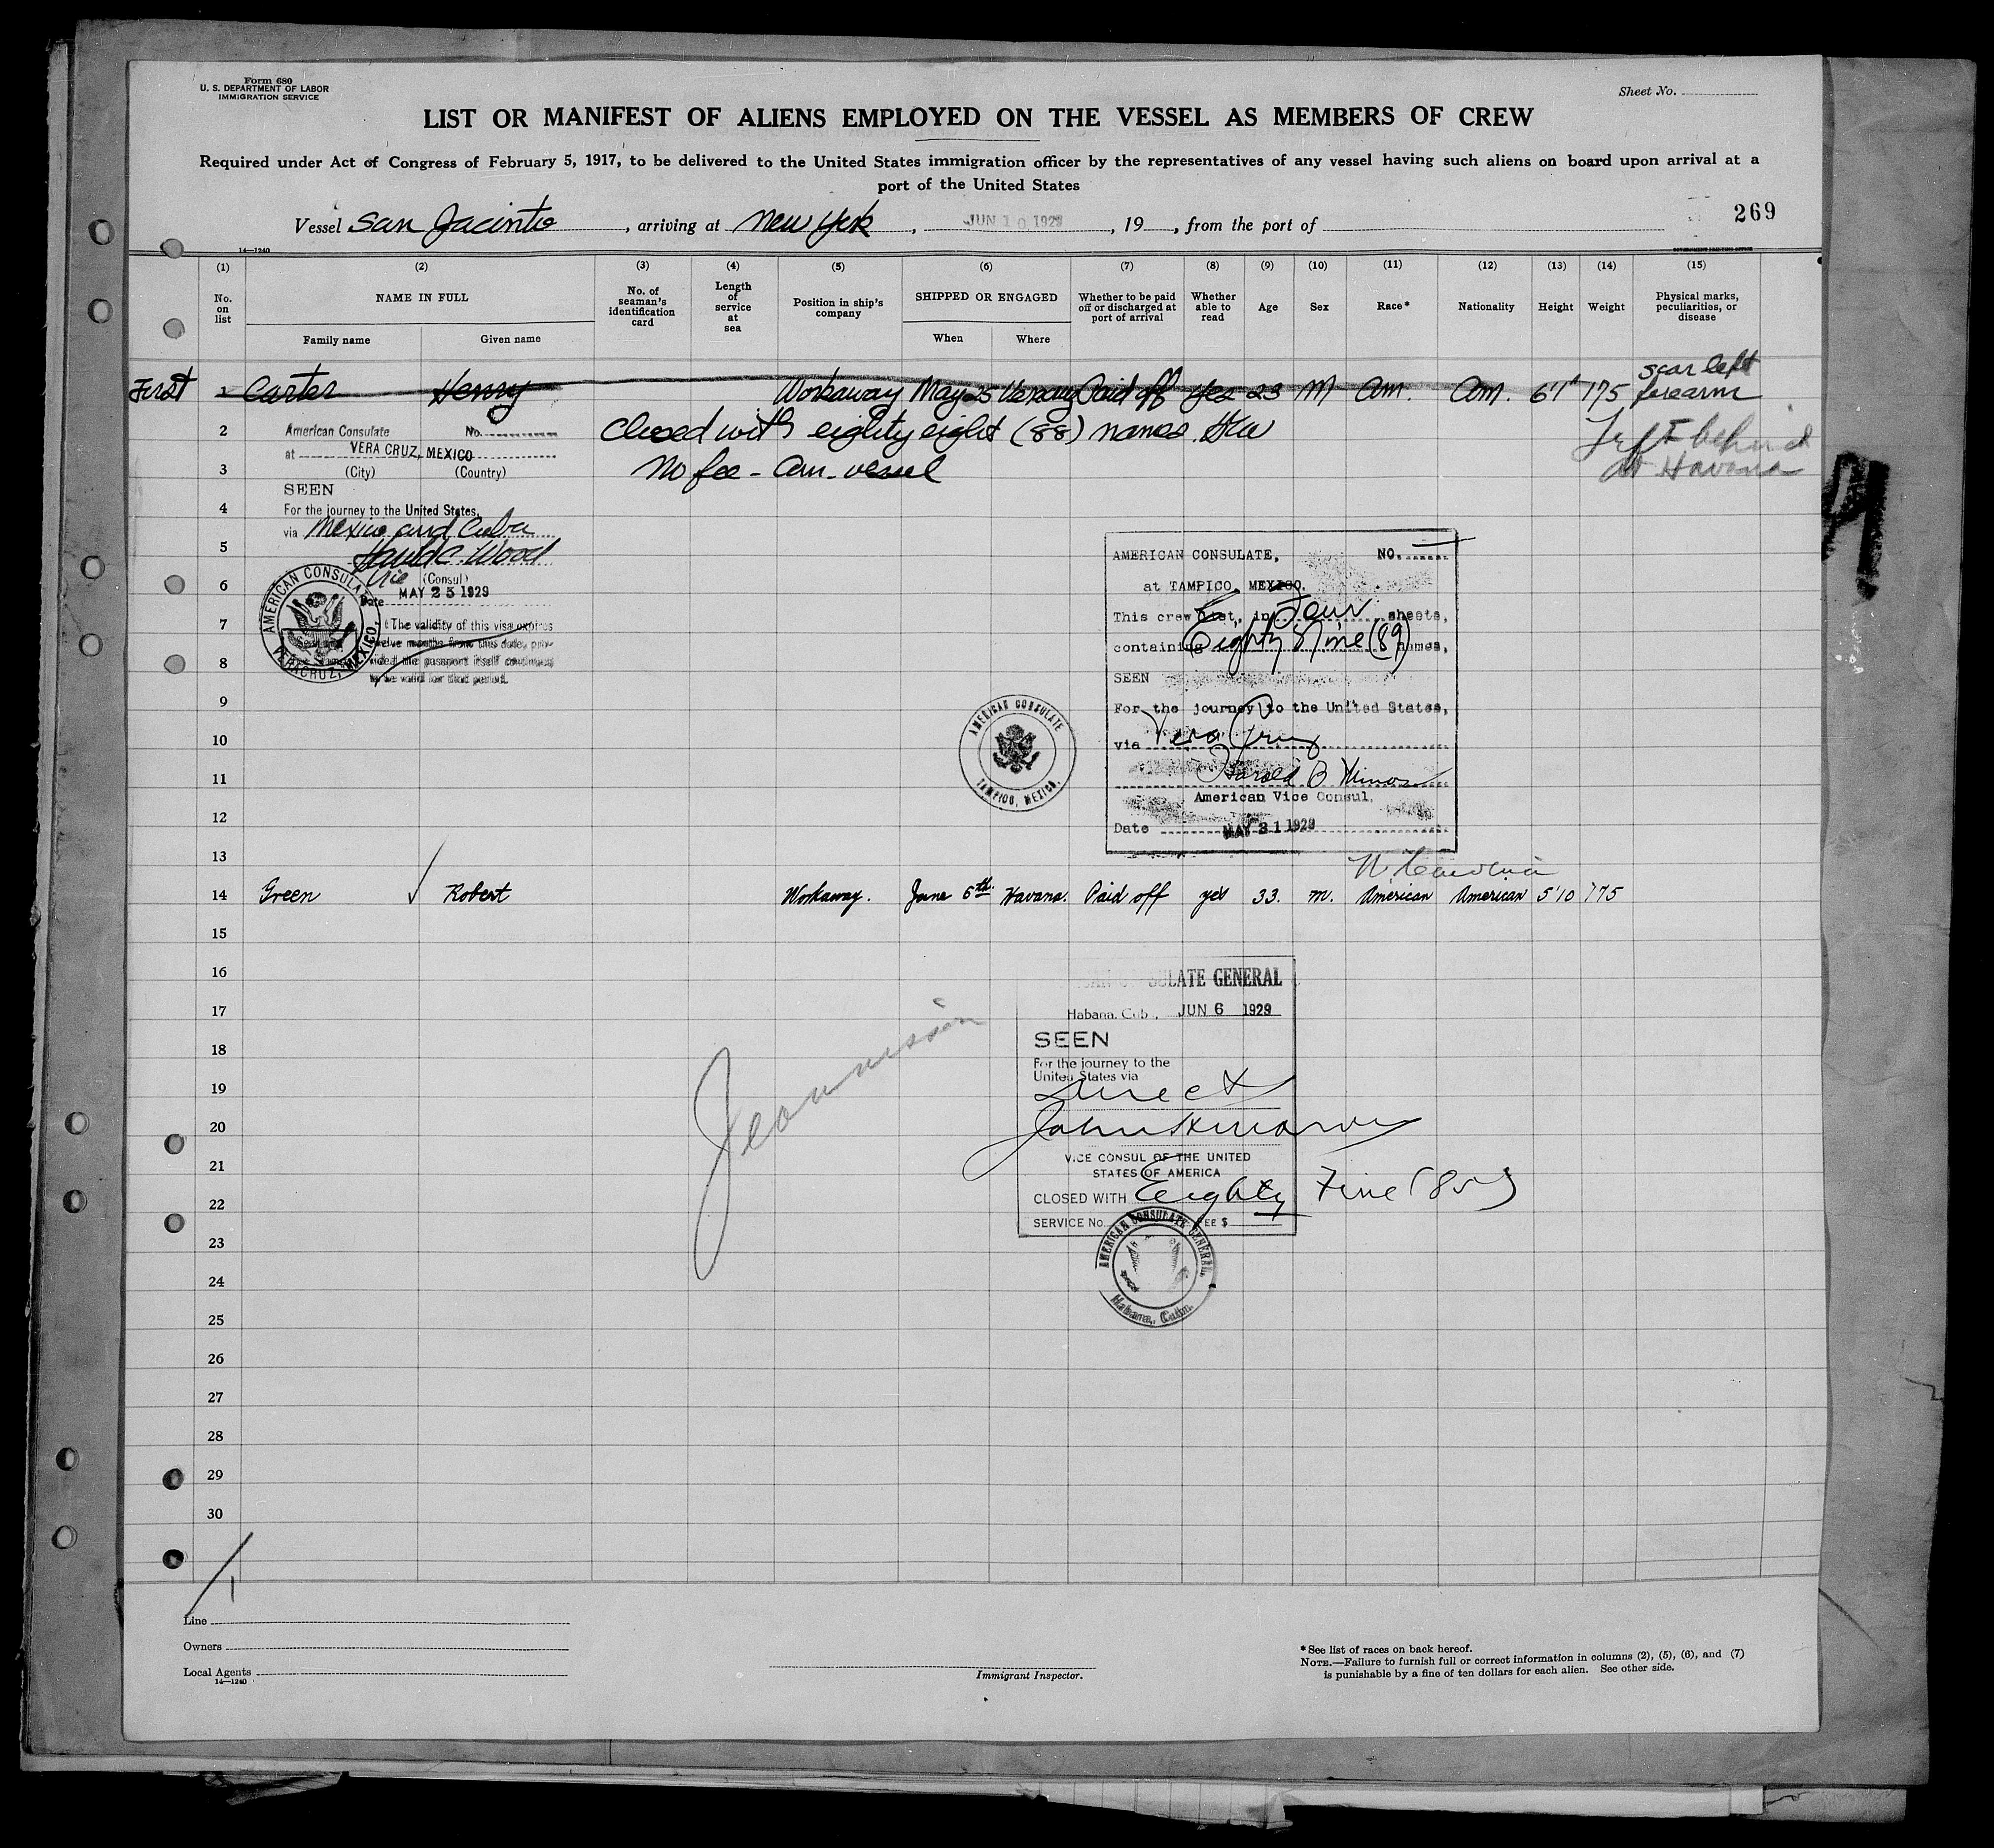 Form 680
U. S. DEPARTMENT OF LABOR
IMMIGRATION SERVICE
Sheet No.
LIST OR MANIFEST OF ALIENS EMPLOYED ON THE VESSEL AS MEMBERS OF CREW
Required under Act of Congress of February 5, 1917, to be delivered to the United States immigration officer by the representatives of any vessel having such aliens on board upon arrival at a
port of the United States
Vessel San Jacinto, arriving at New York, JUN 10 1929, 19, from the port of
269
14—1240
GOVERNMENT PRINTING OFFICE
(1) (2) (3) (4) (5) (6) (7) (8) (9) (10) (11) (12) (13) (14) (15)
No. on list
NAME IN FULL
Family name
Given name
No. of seaman's identification card
Length of service at sea
Position in ship's company
SHIPPED OR ENGAGED
When
Where
Whether to be paid off or discharged at port of arrival
Whether able to read
Age
Sex
Race*
Nationality
Height
Weight
Physical marks, peculiarities, or disease
First 1 Carter Henry Workaway May 25 Paid off yes 23 M Am. Am. 6'1" 175 scar left forearm
2 Closed with eighty eight (88) names. Left behind
3 No fee - Am. vessel at Havana
American Consulate No.
at VERA CRUZ, MEXICO
(City) (Country)
SEEN
4 For the journey to the United States,
via Mexico and Cuba
5 Wood
6 Vice (Consul)
Date MAY 25 1929
7 The validity of this visa expires
twelve months from this date, pro-
8 vided the passport itself continues
to be valid for that period.
AMERICAN CONSULATE VERACRUZ, MEXICO.
AMERICAN CONSULATE, NO.
at TAMPICO, MEXICO.
This crew list, in Four sheets,
containing Eighty Nine (89) names,
SEEN
For the journey to the United States,
via Vera Cruz
Harold B. Minor
American Vice Consul.
Date MAY 31 1929
AMERICAN CONSULATE TAMPICO, MEXICO.
9
10
11
12
13 N. Carolina
14 Green Robert Workaway. June 6th Havana. Paid off yes 33. M. American American 5'10 175
15
16
17
18
19
20
21
22
23
24
25
26
27
28
29
30
CONSULATE GENERAL
Habana, Cuba, JUN 6 1929
SEEN
For the journey to the
United States via
Direct
VICE CONSUL OF THE UNITED
STATES OF AMERICA
CLOSED WITH Eighty Five (85)
SERVICE No. FEE $
AMERICAN CONSULATE GENERAL, Habana, Cuba.
Line
Owners
Local Agents
14—1240
Immigrant Inspector.
*See list of races on back hereof.
NOTE.—Failure to furnish full or correct information in columns (2), (5), (6), and (7)
is punishable by a fine of ten dollars for each alien. See other side.